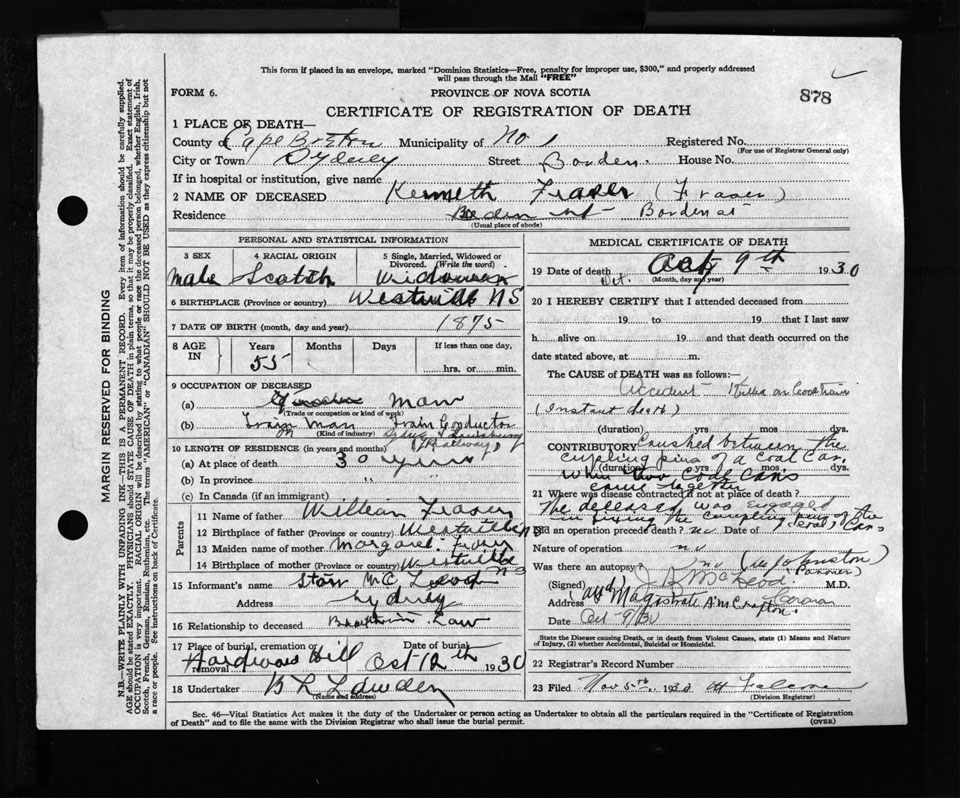 This form if placed in an envelope, marked "Dominion Statistics—Free, penalty for improper use, $300," and properly addressed
will pass through the Mail "FREE"
FORM 6. PROVINCE OF NOVA SCOTIA 878
CERTIFICATE OF REGISTRATION OF DEATH
1 PLACE OF DEATH—
County of Cape Breton Municipality of No 1 Registered No.
(For use of Registrar General only)
City or Town Sydney Street Borden. House No.
If in hospital or institution, give name
2 NAME OF DECEASED Kenneth Fraser (Fraser)
Residence Borden st
(Usual place of abode)
PERSONAL AND STATISTICAL INFORMATION
3 SEX 4 RACIAL ORIGIN 5 Single, Married, Widowed or
Divorced. (Write the word)
Male Scotch Widower
6 BIRTHPLACE (Province or country) Westville NS
7 DATE OF BIRTH (month, day and year) 1875
8 AGE IN Years Months Days If less than one day,
55 hrs. or min.
9 OCCUPATION OF DECEASED
(a) man
(Trade or occupation or kind of work)
(b) Train Man Train Conductor
(Kind of industry) Sydney & Louisburg
Railway
10 LENGTH OF RESIDENCE (in years and months)
(a) At place of death 30 years
(b) In province "
(c) In Canada (if an immigrant)
Parents
11 Name of father William Fraser
12 Birthplace of father (Province or country) Westville NS
13 Maiden name of mother Margaret
14 Birthplace of mother (Province or country) Westville NS
15 Informant's name Stan McLeod
Address Sydney
16 Relationship to deceased Brother in Law
17 Place of burial, cremation or removal Date of burial
Hardwood Hill Oct 12th 1930
18 Undertaker B L
(Name and address)
MEDICAL CERTIFICATE OF DEATH
19 Date of death Oct 9th 1930
Oct. (Month, day and year)
20 I HEREBY CERTIFY that I attended deceased from
19 to 19 that I last saw
h alive on 19 and that death occurred on the
date stated above, at m.
The CAUSE of DEATH was as follows:
Accident Killed on Coal train
(Instant death)
(duration) yrs. mos. dys.
CONTRIBUTORY Crushed between the
coupling pins of a Coal Car,
(duration) yrs. mos. dys.
when two Coal Cars
came together
21 Where was disease contracted if not at place of death?
The deceased was engaged
in fixing the coupling pins of the
Coal Cars
Did an operation precede death? no Date of
Nature of operation no
Was there an autopsy? no (W Johnston)
(Coroner)
(Signed) J McLeod M.D.
Address Magistrate A M Crofton Coroner
Date Oct-9/30
State the Disease causing Death, or in death from Violent Causes, state (1) Means and Nature
of Injury, (2) whether Accidental, Suicidal or Homicidal.
22 Registrar's Record Number
23 Filed Nov 5th 1930
(Division Registrar)
Sec. 46—Vital Statistics Act makes it the duty of the Undertaker or person acting as Undertaker to obtain all the particulars required in the "Certificate of Registration
of Death" and to file the same with the Division Registrar who shall issue the burial permit. (OVER)
MARGIN RESERVED FOR BINDING
N.B.—WRITE PLAINLY WITH UNFADING INK—THIS IS A PERMANENT RECORD. Every item of information should be carefully supplied.
AGE should be stated EXACTLY. PHYSICIANS should STATE CAUSE OF DEATH in plain terms, so that it may be properly classified. Exact statement of
OCCUPATION is very important. RACIAL ORIGIN will be described by stating to what people or race the deceased person belonged, whether English, Irish,
Scotch, French, German, Russian, Ruthenian, etc. The terms "AMERICAN" or "CANADIAN" SHOULD NOT BE USED as they express citizenship but not
a race or people. See instructions on back of Certificate.